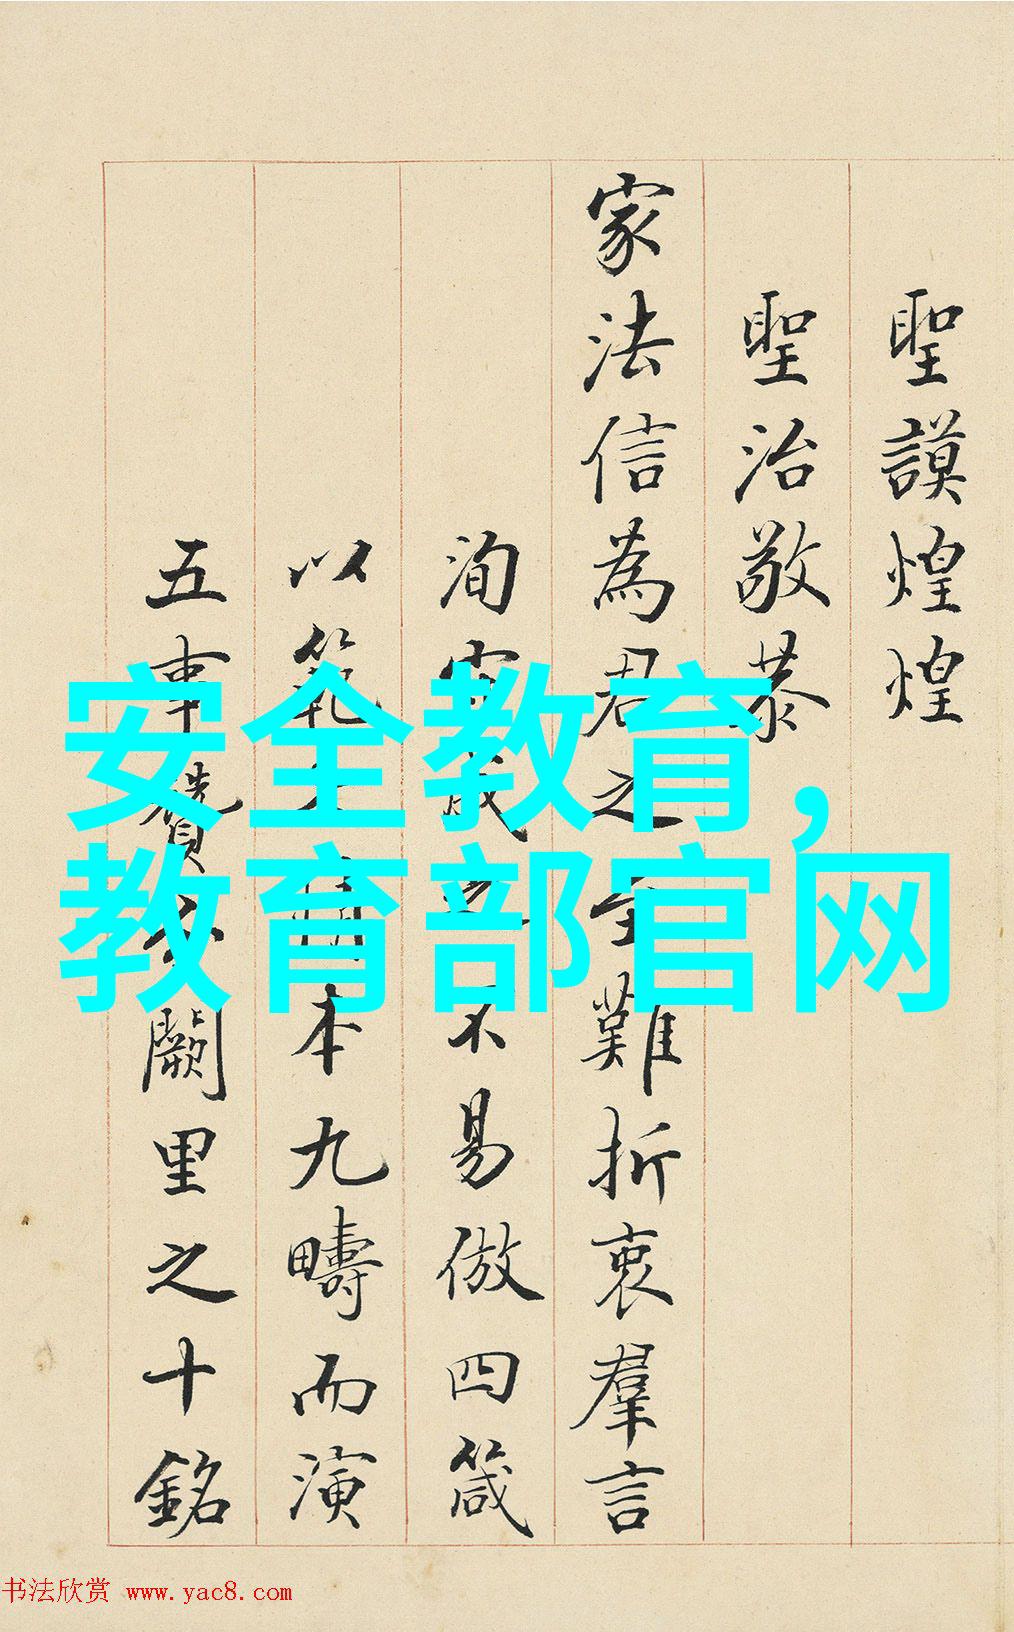 聖謨煌煌
聖治敬恭
家法信為君之至難折衷羣言
洵守成之不易倣四箴
以範之情本九疇而演
五事贊於闕里之十銘
安全教育,
教育部官网
书法欣赏 www.yac8.com